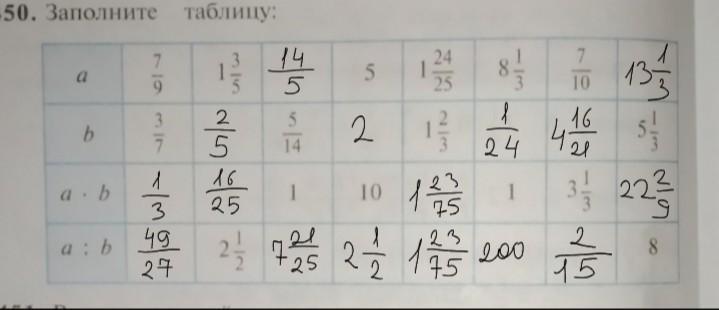 50. Заполните таблицу:
a 7/9 1 3/5 14/5 5 1 24/25 8 1/3 7/10 13 1/3
b 3/7 2/5 5/14 2 1 2/3 1/24 4 16/21 5 1/3
a · b 1/3 16/25 1 10 1 23/75 1 3 1/3 22 2/9
a : b 49/27 2 1/2 7 21/25 2 1/2 1 23/75 200 2/15 8